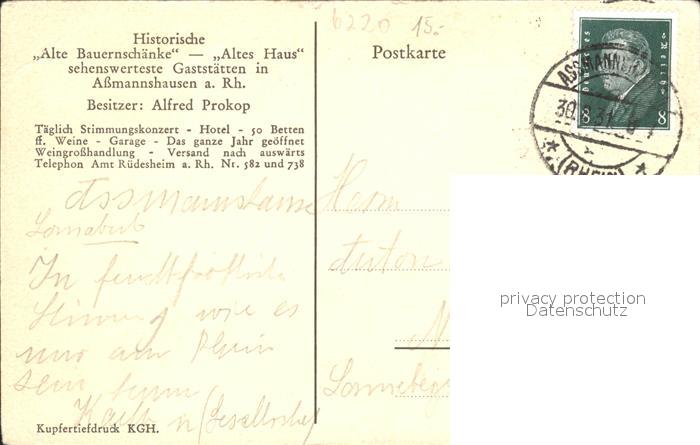 6220 15.-
Historische
„Alte Bauernschänke“ — „Altes Haus“
sehenswerteste Gaststätten in
Aßmannshausen a. Rh.
Besitzer: Alfred Prokop
Täglich Stimmungskonzert - Hotel - 50 Betten
ff. Weine - Garage - Das ganze Jahr geöffnet
Weingroßhandlung - Versand nach auswärts
Telephon Amt Rüdesheim a. Rh. Nr. 582 und 738
In feuchtfröhliche
Stimmung wie es
nur am Rhein
sein kann
Kupfertiefdruck KGH.
Postkarte
Deutsches Reich
8 8
(RHEIN)
Herrn
Anton
privacy protection
Datenschutz